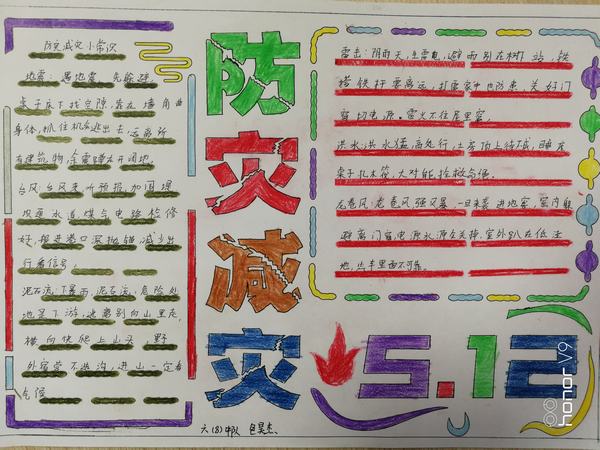 防灾减灾小常识
地震:遇地震,先躲避,
桌子床下找空隙,靠在墙角曲
身体,抓住机会逃出去,远离所
有建筑物,余震蹲在开阔地。
台风:台风来听预报,加固堤
坝通水道,煤气电路检修
好,
行看信号。
泥石流:下暴雨,泥石流,危险处
地是下游,逃离别向
横向快爬上山头,野
外宿营不选沟,进山一定看
气候
防灾减灾
雷击:阴雨天,生雷电,避雨别在树
塔铁杆要离远,打雷家中也防患,关好门
窗切电源。
洪水:洪水猛,高处行,土房顶上待不成,睡床
桌子扎木筏,大树能拴救命绳。
龙卷风:龙卷风强风暴,一旦袭来进地窖,室内躲
避离门窗,电源水源全关掉,室外趴在低洼
地,汽车里面不可靠。
5.12
六(8)中队
honor V9